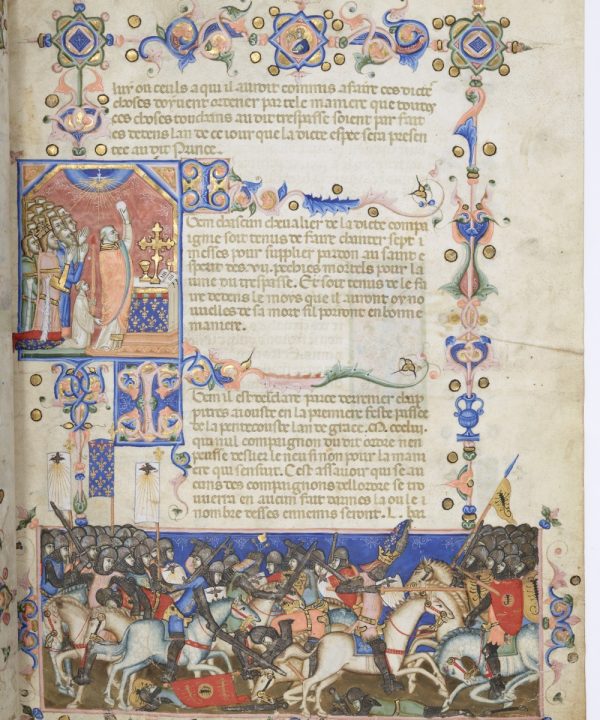 luy ou ceuls a qui il auroit commis afaire ces dicte
choses doyuent ortener par tele maniere que toutes
ces choses touchans au dit trespasse soient par fai
tes dedens lan de ce iour que la dicte espee sera presen
tee au dit Prince.
Item chascun cheualier de la dicte compa
ignie soit tenus de faire chanter sept i
messes pour supplier pardon au saint e
sperit des .vii. pechies mortels pour la
ame du trespasse. Et soit tenus de le fa
ire dedens le moys que il auront oy no
uuelles de sa mort sil poront en bonne
maniere.
Item il est declare par ce derrenier chap
pitres aiouste en la premiere feste passee
de la pentecouste lan de grace .M.
qui nul compaignon du dit ordre n en
presse deslier le neu si non pour la mani
ere qui sensuit. Cest assauoir qui se au
cuns des compaignons dellordre se tro
uuera en aucun fait darmes la ou le i
nombre desses ennemis seront .L. bar